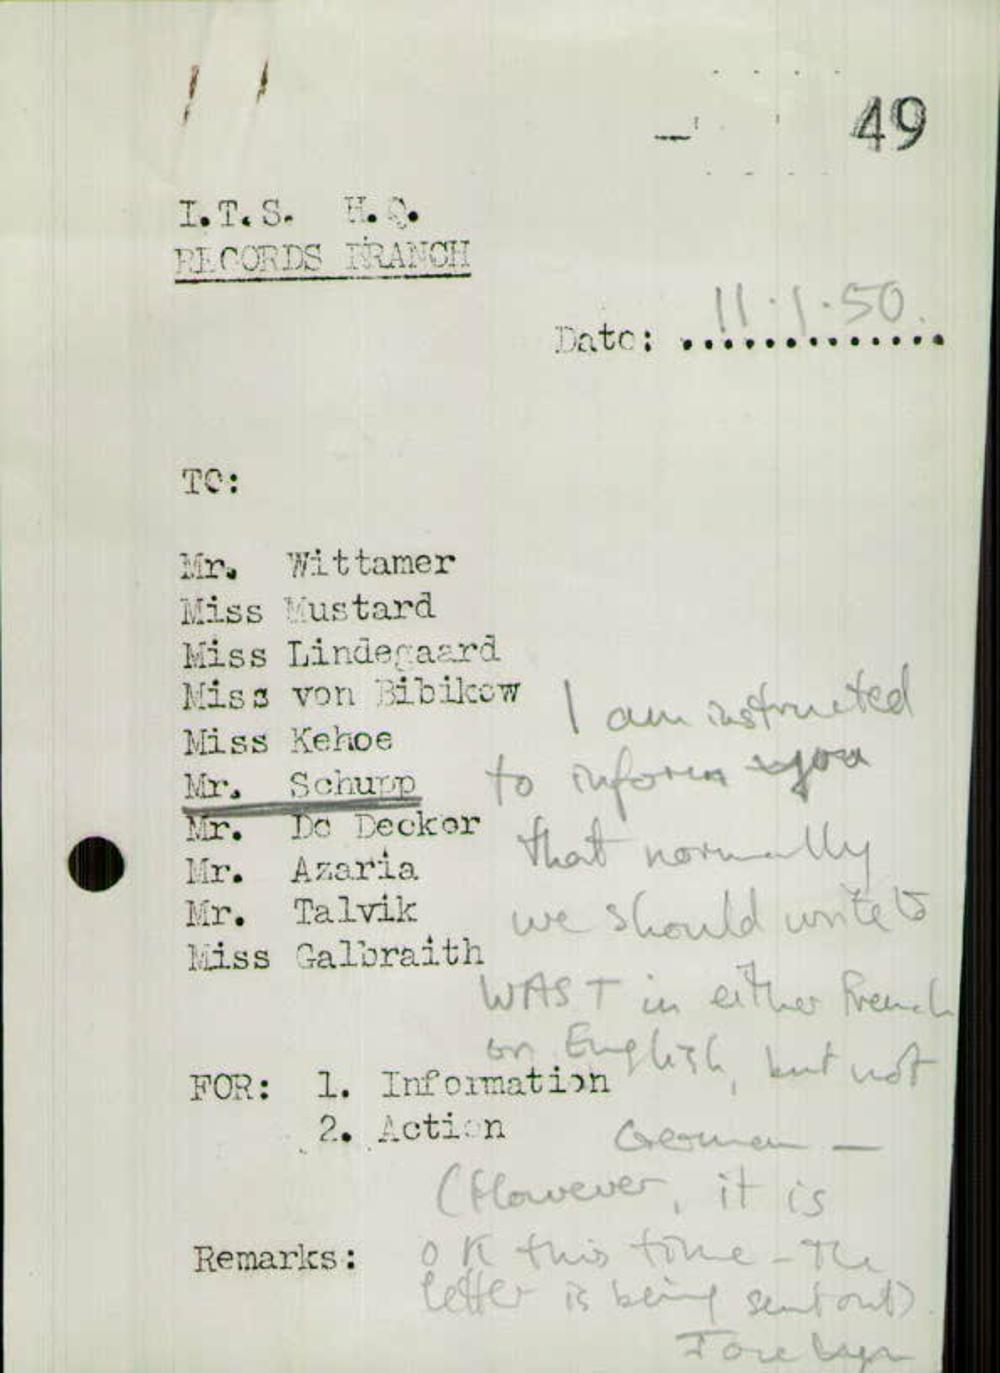 49
I.T.S. H.Q.
RECORDS BRANCH
11.1.50.
Date: ..............
TO:
Mr. Wittamer
Miss Mustard
Miss Lindegaard
Miss von Bibikow
Miss Kehoe
Mr. Schupp
Mr. De Decker
Mr. Azaria
Mr. Talvik
Miss Galbraith
I am instructed
to inform you
that normally
we should write to
WAST in either French
or English, but not
German —
(However, it is
OK this time - The
letter is being sent out)
FOR: 1. Information
2. Action
Remarks: